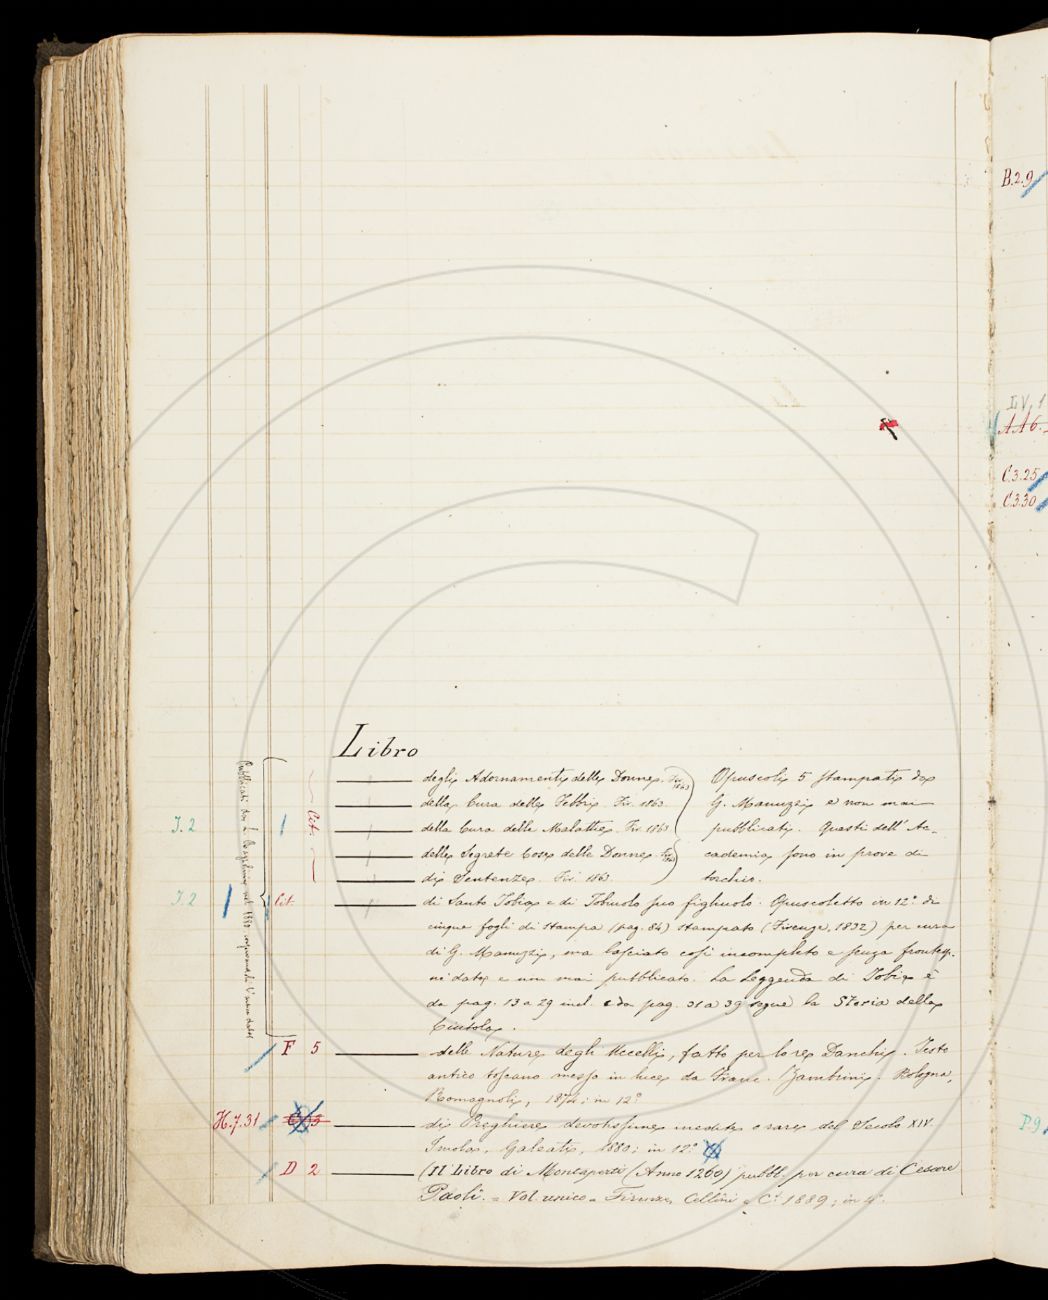 B.2.9
LV, 1
AA 6.
C.3.25
C.3.30
Libro
degli Adornamenti delle Donne. Fir. 1863
della Cura delle Febbri. Fir. 1863.
I.2 della Cura delle Malattie. Fir. 1863
lit.
delle Segrete Cose delle Donne. Fir. 1863
di Sentenze. Fir. 1863.
Opuscoli 5 stampati da
G. Manuzzi e non mai
pubblicati. Questi dell' Ac-
cademia sono in prove di
torchio.
Pubblicati da L.
I.2 lit. di Santo Tobia e di Tobiuolo suo figliuolo. Opuscoletto in 12.° di
cinque fogli di stampa (pag. 84) stampato (Firenze, 1832) per cura
di G. Manuzzi, ma lasciato così incompleto e senza frontesp.
nè data e non mai pubblicato. La Leggenda di Tobia è
da pag. 13 a 29 incl. e da pag. 31 a 39 segue la Storia della
Cintola.
F 5 delle Nature degli Uccelli, fatto per lo re Danchi. Testo
antico toscano messo in luce da Franc. Zambrini. Bologna,
Romagnoli, 1874; in 12.°
H.7.31 di Preghiere devotissime inedite e rare del Secolo XIV.
Imola, Galeati, 1880; in 12.°
D 2 (Il Libro di Montaperti (Anno 1260) pubb. per cura di Cesare
Paoli. = Vol. unico = Firenze, Cellini e C.i 1889; in 4.°
P.9